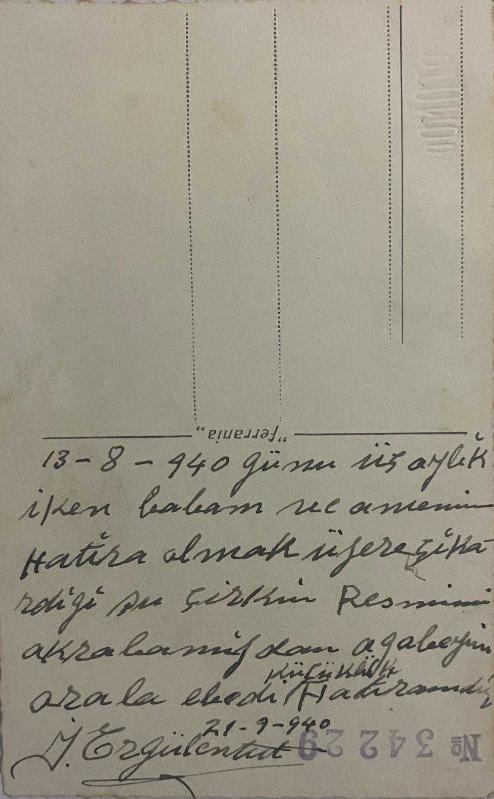 "ferrania"
13-8-940 günü üç aylık
iken babam ve annemin
Hatıra olmak üzere çıka
rdığı şu çirkin Resmimi
akrabamızdan ağabeyim
küçüklük
orala ebedi Hatıramdır
21-9-940
İ. Ergülentut
№ 34229